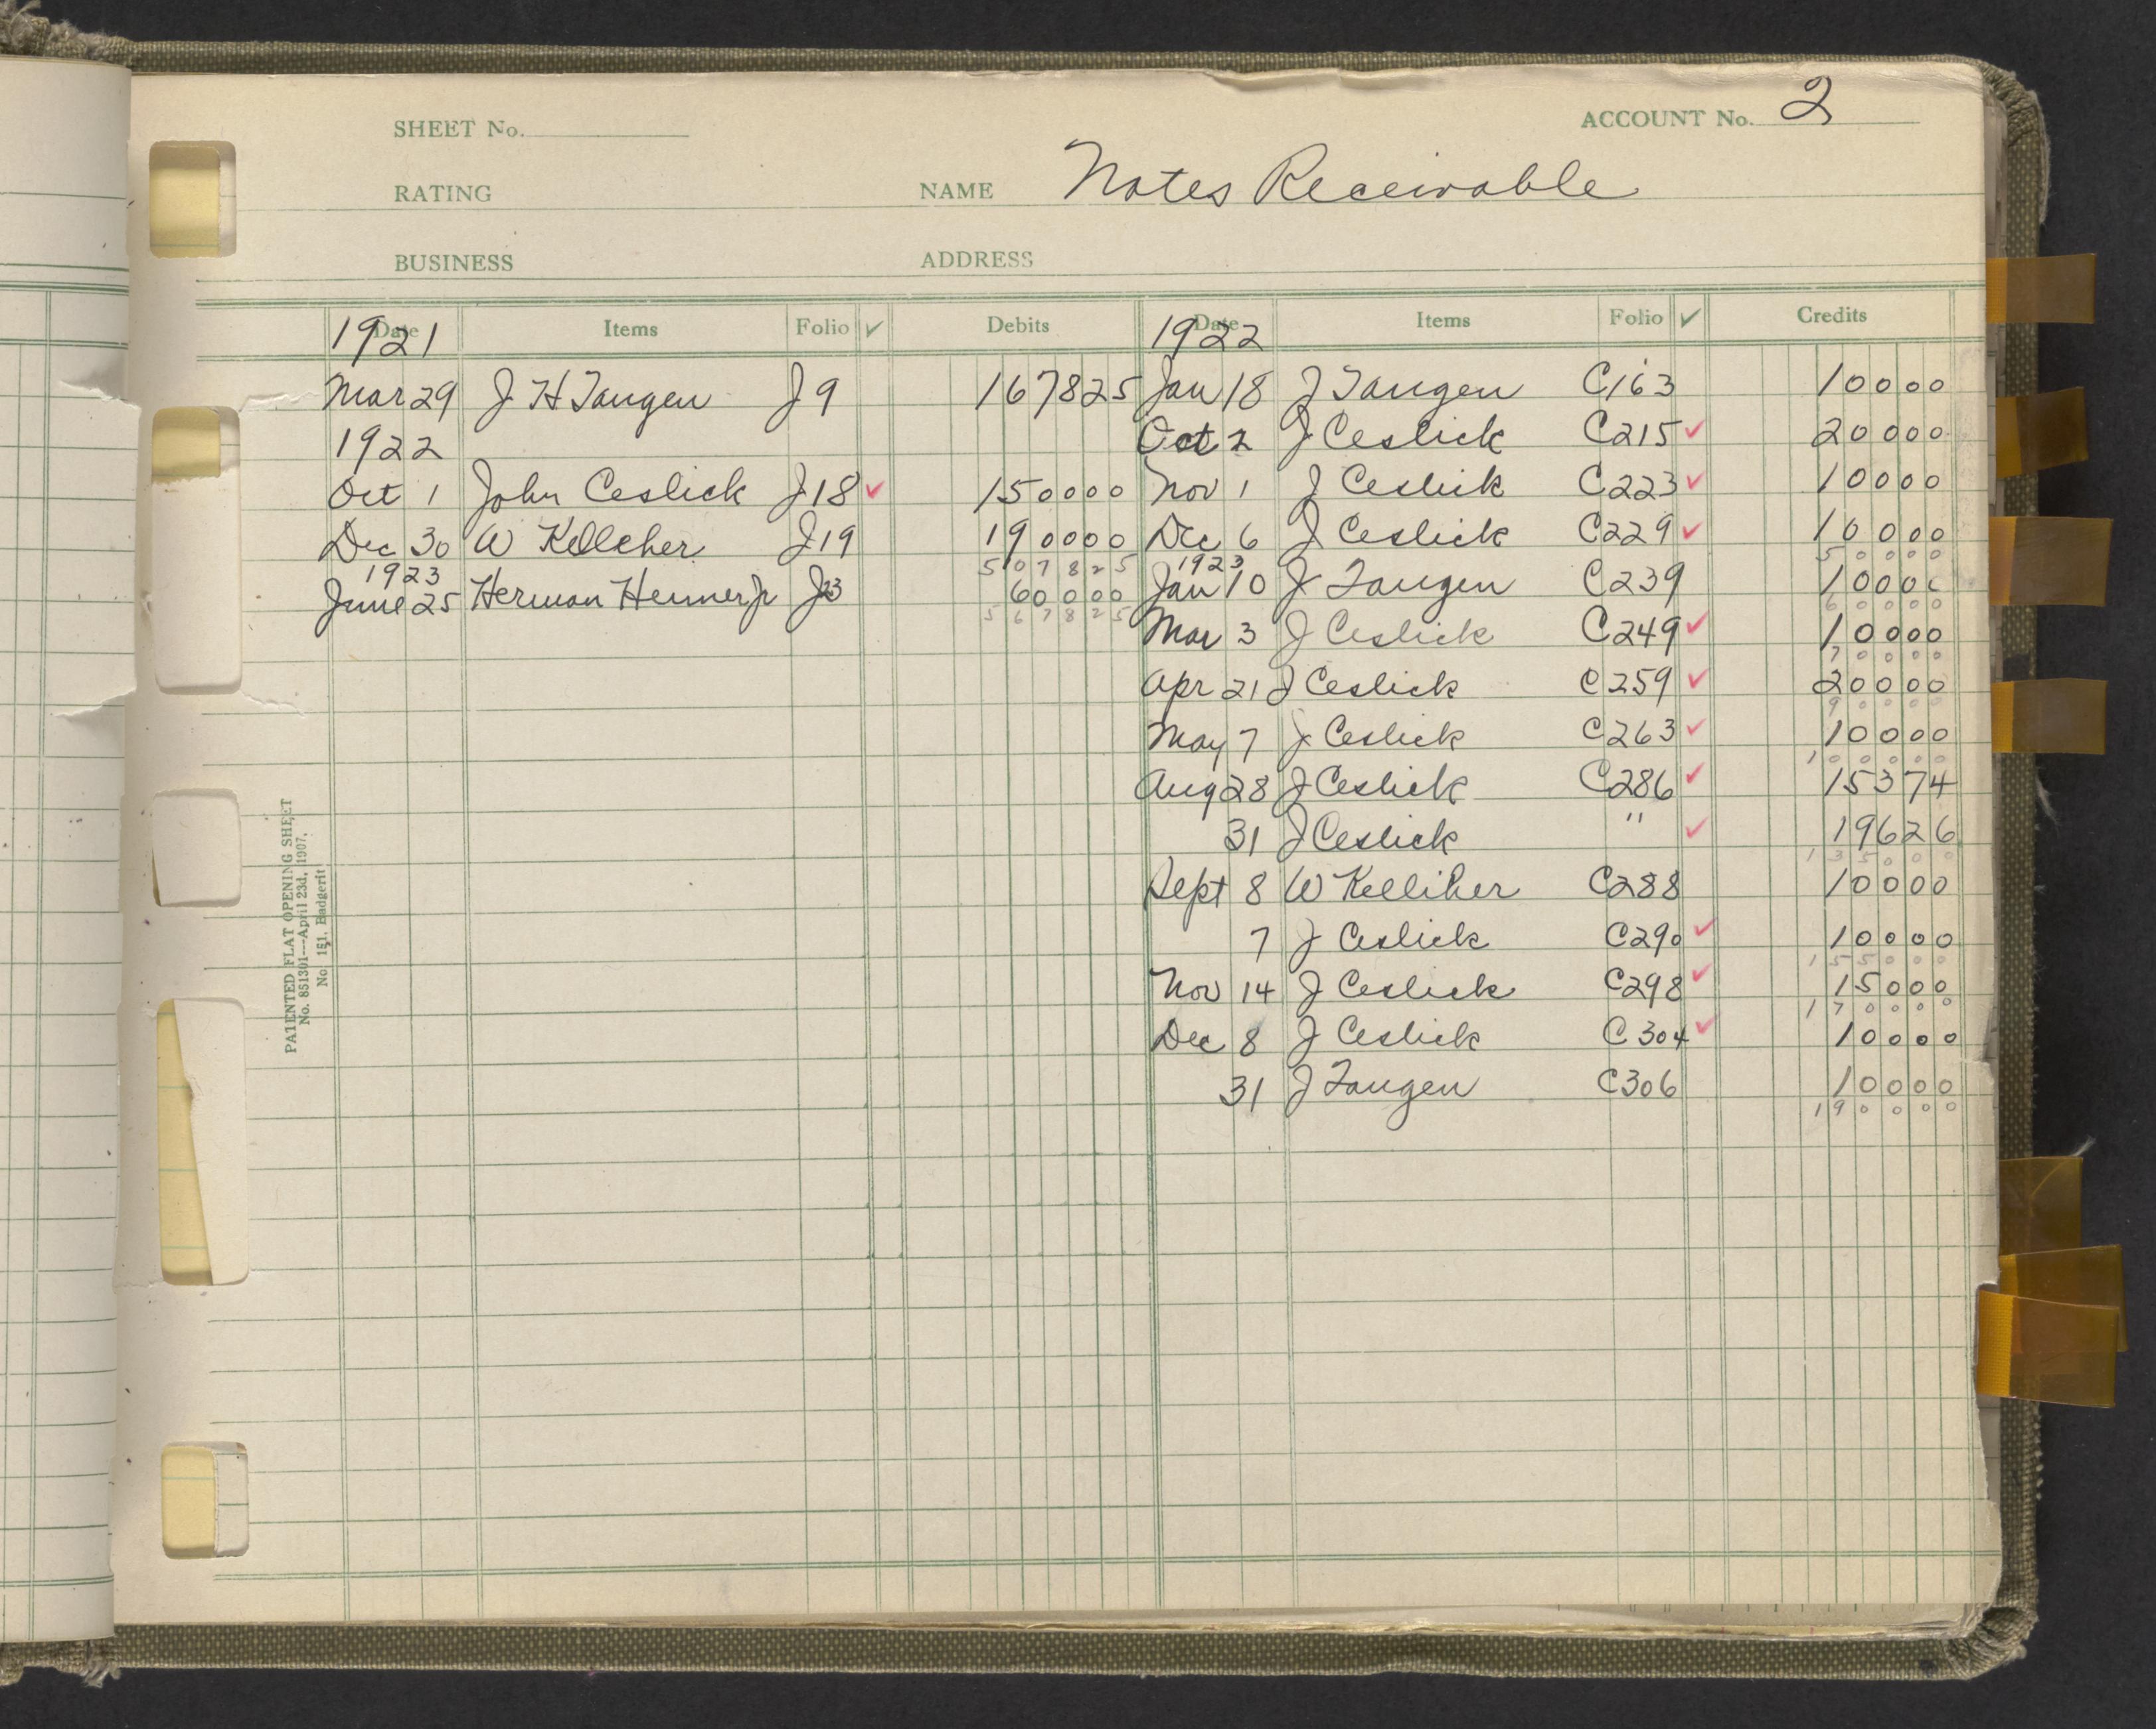 SHEET No. ACCOUNT No. 2
RATING NAME Notes Receivable
BUSINESS ADDRESS
Date Items Folio ✓ Debits Date Items Folio ✓ Credits
1921 1922
Mar 29 J H Tangen J9 167825 Jan 18 J Tangen C163 10000
1922 Oct 2 J Ceslick C215 ✓ 20000
Oct 1 John Ceslick J18 ✓ 150000 Nov 1 J Ceslick C223 ✓ 10000
Dec 30 W Kelleher J19 190000 Dec 6 J Ceslick C229 ✓ 10000
507825 50000
1923 1923
June 25 Herman Henner Jr J23 60000 Jan 10 J Tangen C239 10000
567825 60000
Mar 3 J Ceslick C249 ✓ 10000
70000
Apr 21 J Ceslick C259 ✓ 20000
90000
May 7 J Ceslick C263 ✓ 10000
100000
Aug 28 J Ceslick C286 ✓ 15374
31 J Ceslick " ✓ 19626
135000
Sept 8 W Kelliher C288 10000
7 J Ceslick C290 ✓ 10000
155000
Nov 14 J Ceslick C298 ✓ 15000
170000
Dec 8 J Ceslick C304 ✓ 10000
31 J Tangen C306 10000
190000
PATENTED FLAT OPENING SHEET
No. 851301—April 23d, 1907.
No. 151. Badgerit